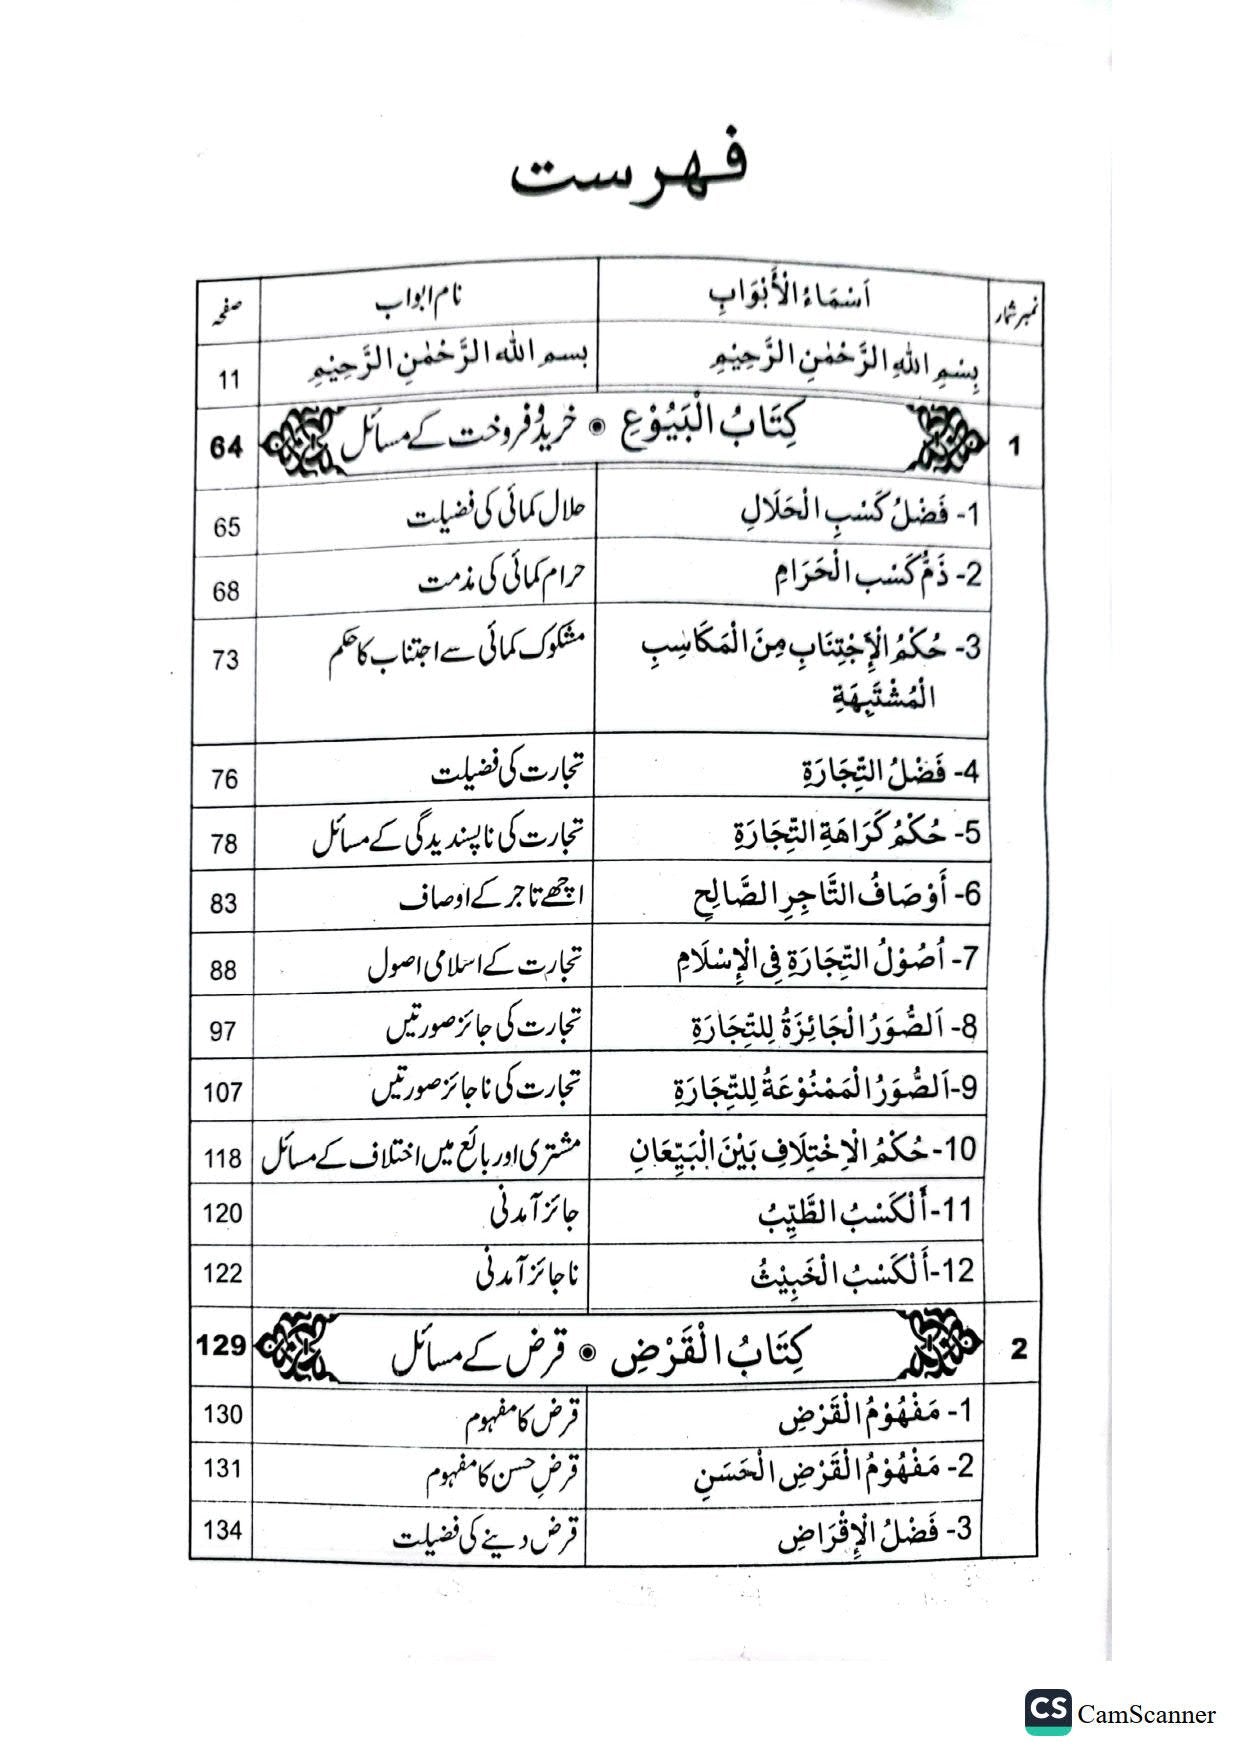 فہرست
نمبر شمار اَسْمَاءُ الْأَبْوَابِ نام ابواب صفحہ
بِسْمِ اللهِ الرَّحْمٰنِ الرَّحِيْمِ بسم الله الرَّحْمٰنِ الرَّحِيْمِ 11
1 كِتَابُ الْبَيُوْعِ ◉ خرید و فروخت کے مسائل 64
1- فَضْلُ كَسْبِ الْحَلَالِ حلال کمائی کی فضیلت 65
2- ذَمُّ كَسْبِ الْحَرَامِ حرام کمائی کی مذمت 68
3- حُكْمُ الْإِجْتِنَابِ مِنَ الْمَكَاسِبِ مشکوک کمائی سے اجتناب کا حکم 73
الْمُشْتَبِهَةِ
4- فَضْلُ التِّجَارَةِ تجارت کی فضیلت 76
5- حُكْمُ كَرَاهَةِ التِّجَارَةِ تجارت کی ناپسندیدگی کے مسائل 78
6- أَوْصَافُ التَّاجِرِ الصَّالِحِ اچھے تاجر کے اوصاف 83
7- اُصُوْلُ التِّجَارَةِ فِي الْإِسْلَامِ تجارت کے اسلامی اصول 88
8- اَلصُّوَرُ الْجَائِزَةُ لِلتِّجَارَةِ تجارت کی جائز صورتیں 97
9- اَلصُّوَرُ الْمَمْنُوْعَةُ لِلتِّجَارَةِ تجارت کی ناجائز صورتیں 107
10- حُكْمُ الْاِخْتِلَافِ بَيْنَ الْبَيِّعَانِ مشتری اور بائع میں اختلاف کے مسائل 118
11- أَلْكَسْبُ الطَّيِّبُ جائز آمدنی 120
12- أَلْكَسْبُ الْخَبِيْثُ ناجائز آمدنی 122
2 كِتَابُ الْقَرْضِ ◉ قرض کے مسائل 129
1- مَفْهُوْمُ الْقَرْضِ قرض کا مفہوم 130
2- مَفْهُوْمُ الْقَرْضِ الْحَسَنِ قرضِ حسن کا مفہوم 131
3- فَضْلُ الْإِقْرَاضِ قرض دینے کی فضیلت 134
CS CamScanner